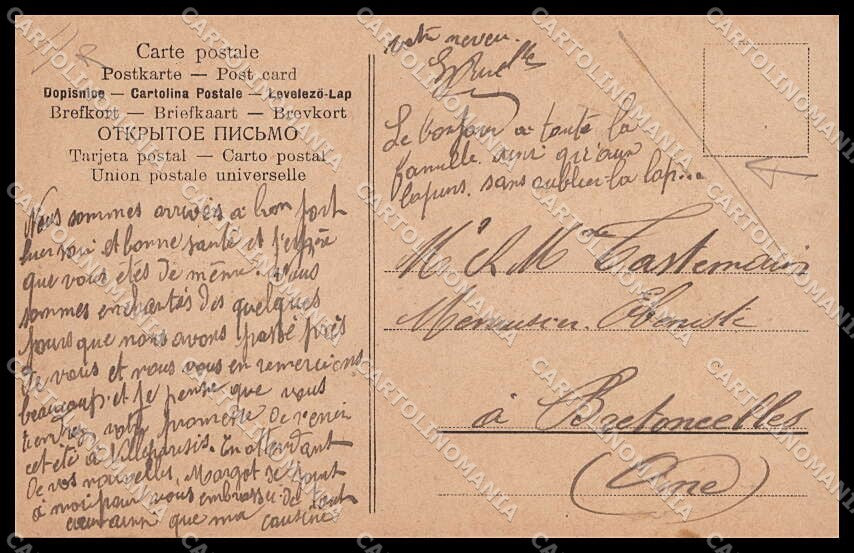 Carte postale
Postkarte — Post card
Dopisnice — Cartolina Postale — Levelező-Lap
Brefkort — Briefkaart — Brevkort
ОТКРЫТОЕ ПИСЬМО
Tarjeta postal — Carto postal
Union postale universelle
Nous sommes arrivés à bon port
hier soir et bonne santé et j'espère
que vous etes de même. Nous
sommes enchantés des quelques
jours que nous avons passé près
de vous et nous vous en remercions
beaucoup. et je pense que vous
tiendrez votre promesse de venir
cet été à Villeparisis. En attendant
de vos nouvelles, Margot se joint
à moi pour vous embrasser de tout
cœur ainsi que ma cousine
votre neveu.
Le bonjour a toute la
famille. ainsi qu'aux
lapins. sans oublier la lap...
Mr & Mme Castemain
Menuisier. Ebeniste
à Bretoncelles
(Orne)
CARTOLINOMANIA